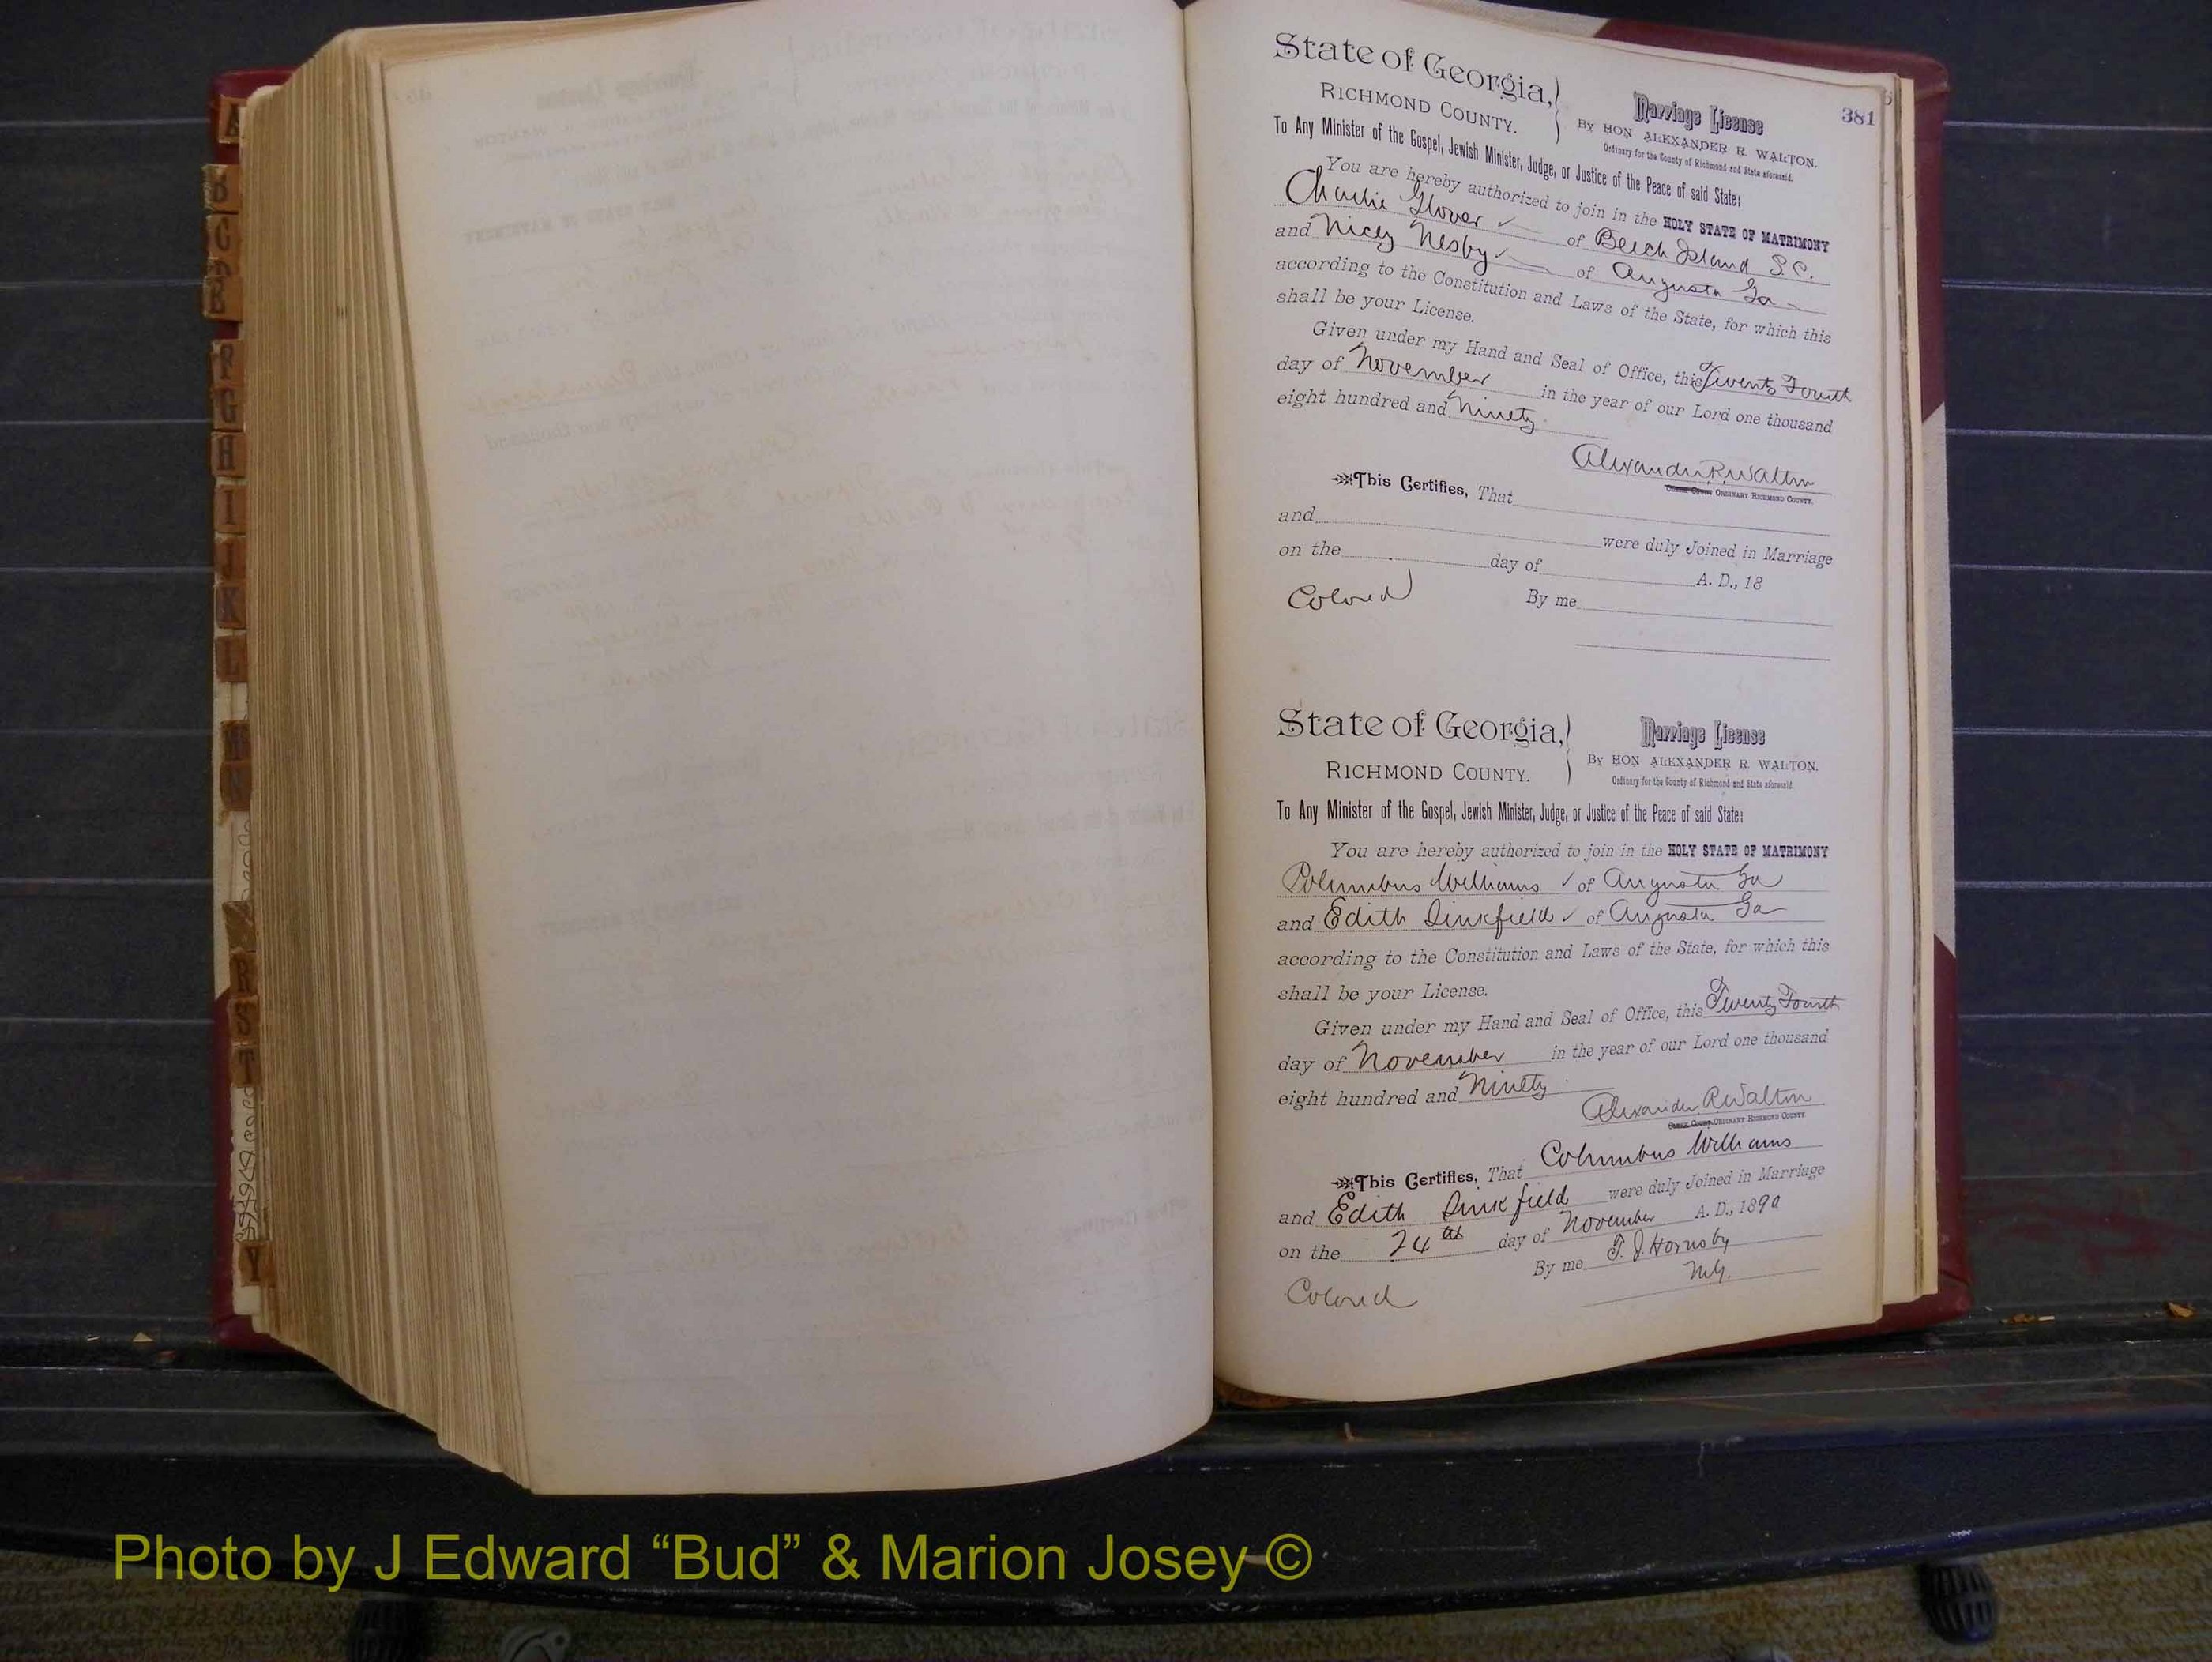 381
State of Georgia,
RICHMOND COUNTY.
Marriage License
By HON ALEXANDER R. WALTON.
Ordinary for the County of Richmond and State aforesaid.
To Any Minister of the Gospel, Jewish Minister, Judge, or Justice of the Peace of said State:
You are hereby authorized to join in the HOLY STATE OF MATRIMONY
Charlie Glover of Beech Island S.C.
and Nicey Nesby of Augusta Ga
according to the Constitution and Laws of the State, for which this
shall be your License.
Given under my Hand and Seal of Office, this Twenty Fourth
day of November in the year of our Lord one thousand
eight hundred and Ninety
Alexander R. Walton
ORDINARY RICHMOND COUNTY.
This Certifies, That
and were duly Joined in Marriage
on the day of A. D., 18
Colored By me
State of Georgia,
RICHMOND COUNTY.
Marriage License
By HON ALEXANDER R. WALTON.
Ordinary for the County of Richmond and State aforesaid.
To Any Minister of the Gospel, Jewish Minister, Judge, or Justice of the Peace of said State:
You are hereby authorized to join in the HOLY STATE OF MATRIMONY
Columbus Williams of Augusta Ga
and Edith Dinkfield of Augusta Ga
according to the Constitution and Laws of the State, for which this
shall be your License.
Given under my Hand and Seal of Office, this Twenty Fourth
day of November in the year of our Lord one thousand
eight hundred and Ninety
Alexander R Walton
ORDINARY RICHMOND COUNTY
This Certifies, That Columbus Williams
and Edith Dinkfield were duly Joined in Marriage
on the 24th day of November A. D., 1890
By me T. J. Hornsby
M.G.
Colored
Photo by J Edward “Bud” & Marion Josey ©